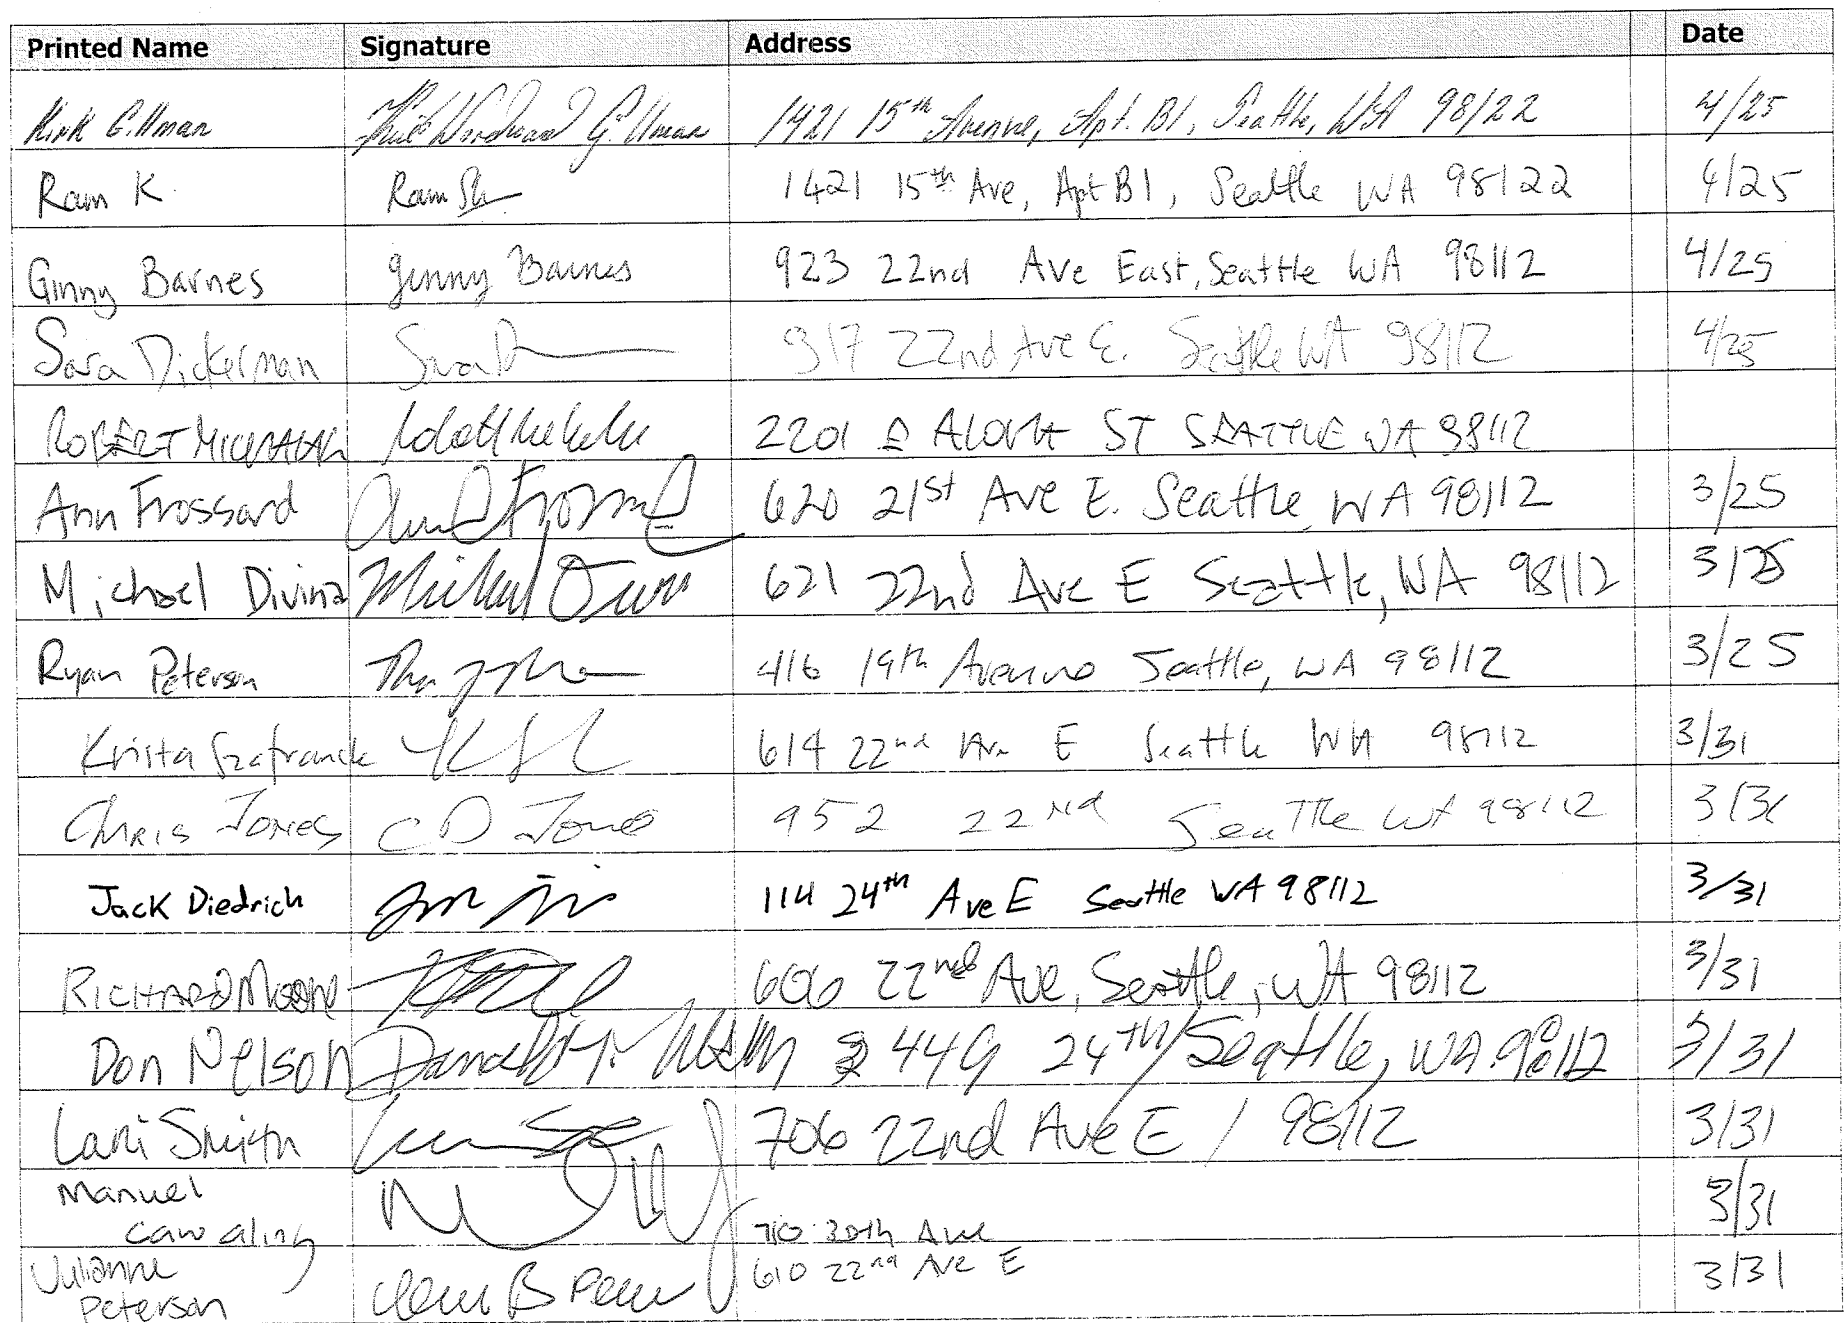 Printed Name Signature Address Date
Kirk Gillman Kirk Woodward Gillman 1421 15th Avenue, Apt. B1, Seattle, WA 98122 4/25
Ram K. Ram 1421 15th Ave, Apt B1, Seattle WA 98122 4/25
Ginny Barnes Ginny Barnes 923 22nd Ave East, Seattle WA 98112 4/25
Sara Dickerman Sara D 917 22nd Ave E. Seattle WA 98112 4/25
ROBERT 2201 E ST SEATTLE WA 98112
Ann Frossard Ann Frossard 620 21st Ave E. Seattle WA 98112 3/25
Michael Divina Michael 621 22nd Ave E Seattle, WA 98112 3/25
Ryan Peterson 416 19th Avenue Seattle, WA 98112 3/25
Krista 614 22nd Ave E Seattle WA 98112 3/31
Chris Jones CD Jones 952 22nd Seattle WA 98112 3/31
Jack Diedrich 114 24th Ave E Seattle WA 98112 3/31
RICHARD MOORE 606 22nd Ave, Seattle, WA 98112 3/31
Don Nelson Nelson 449 24TH/Seattle, WA. 98112 3/31
Lani Smith 706 22nd Ave E / 98112 3/31
Manuel 3/31
Cawaling 710 30th Ave
Julianne 610 22nd Ave E 3/31
Peterson